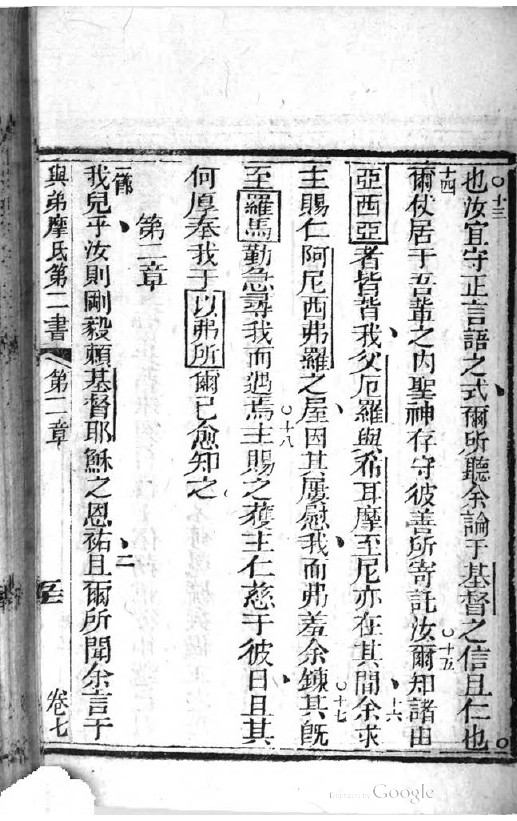 ○十三
也汝宜守正言語之式爾所聽余論于基督之信且仁也○
十四
爾仗居于吾輩之內聖神存守彼善所寄託汝○十五爾知諸由
亞西亞者皆背我父厄羅與希耳摩至尼亦在其間十六余求
主賜仁阿尼西弗羅之屋因其屢慰我而弗羞余鍊○十七其旣
至羅馬勤急尋我而遇焉○十八主賜之獲主仁慈于彼日且其
何厚奉我于以弗所爾已愈知之
第二章
一節
我兒乎汝則剛毅賴基督耶穌之恩祐二且爾所聞余言于
與弟摩氏第二書 第二章 卷七
Digitized by Google